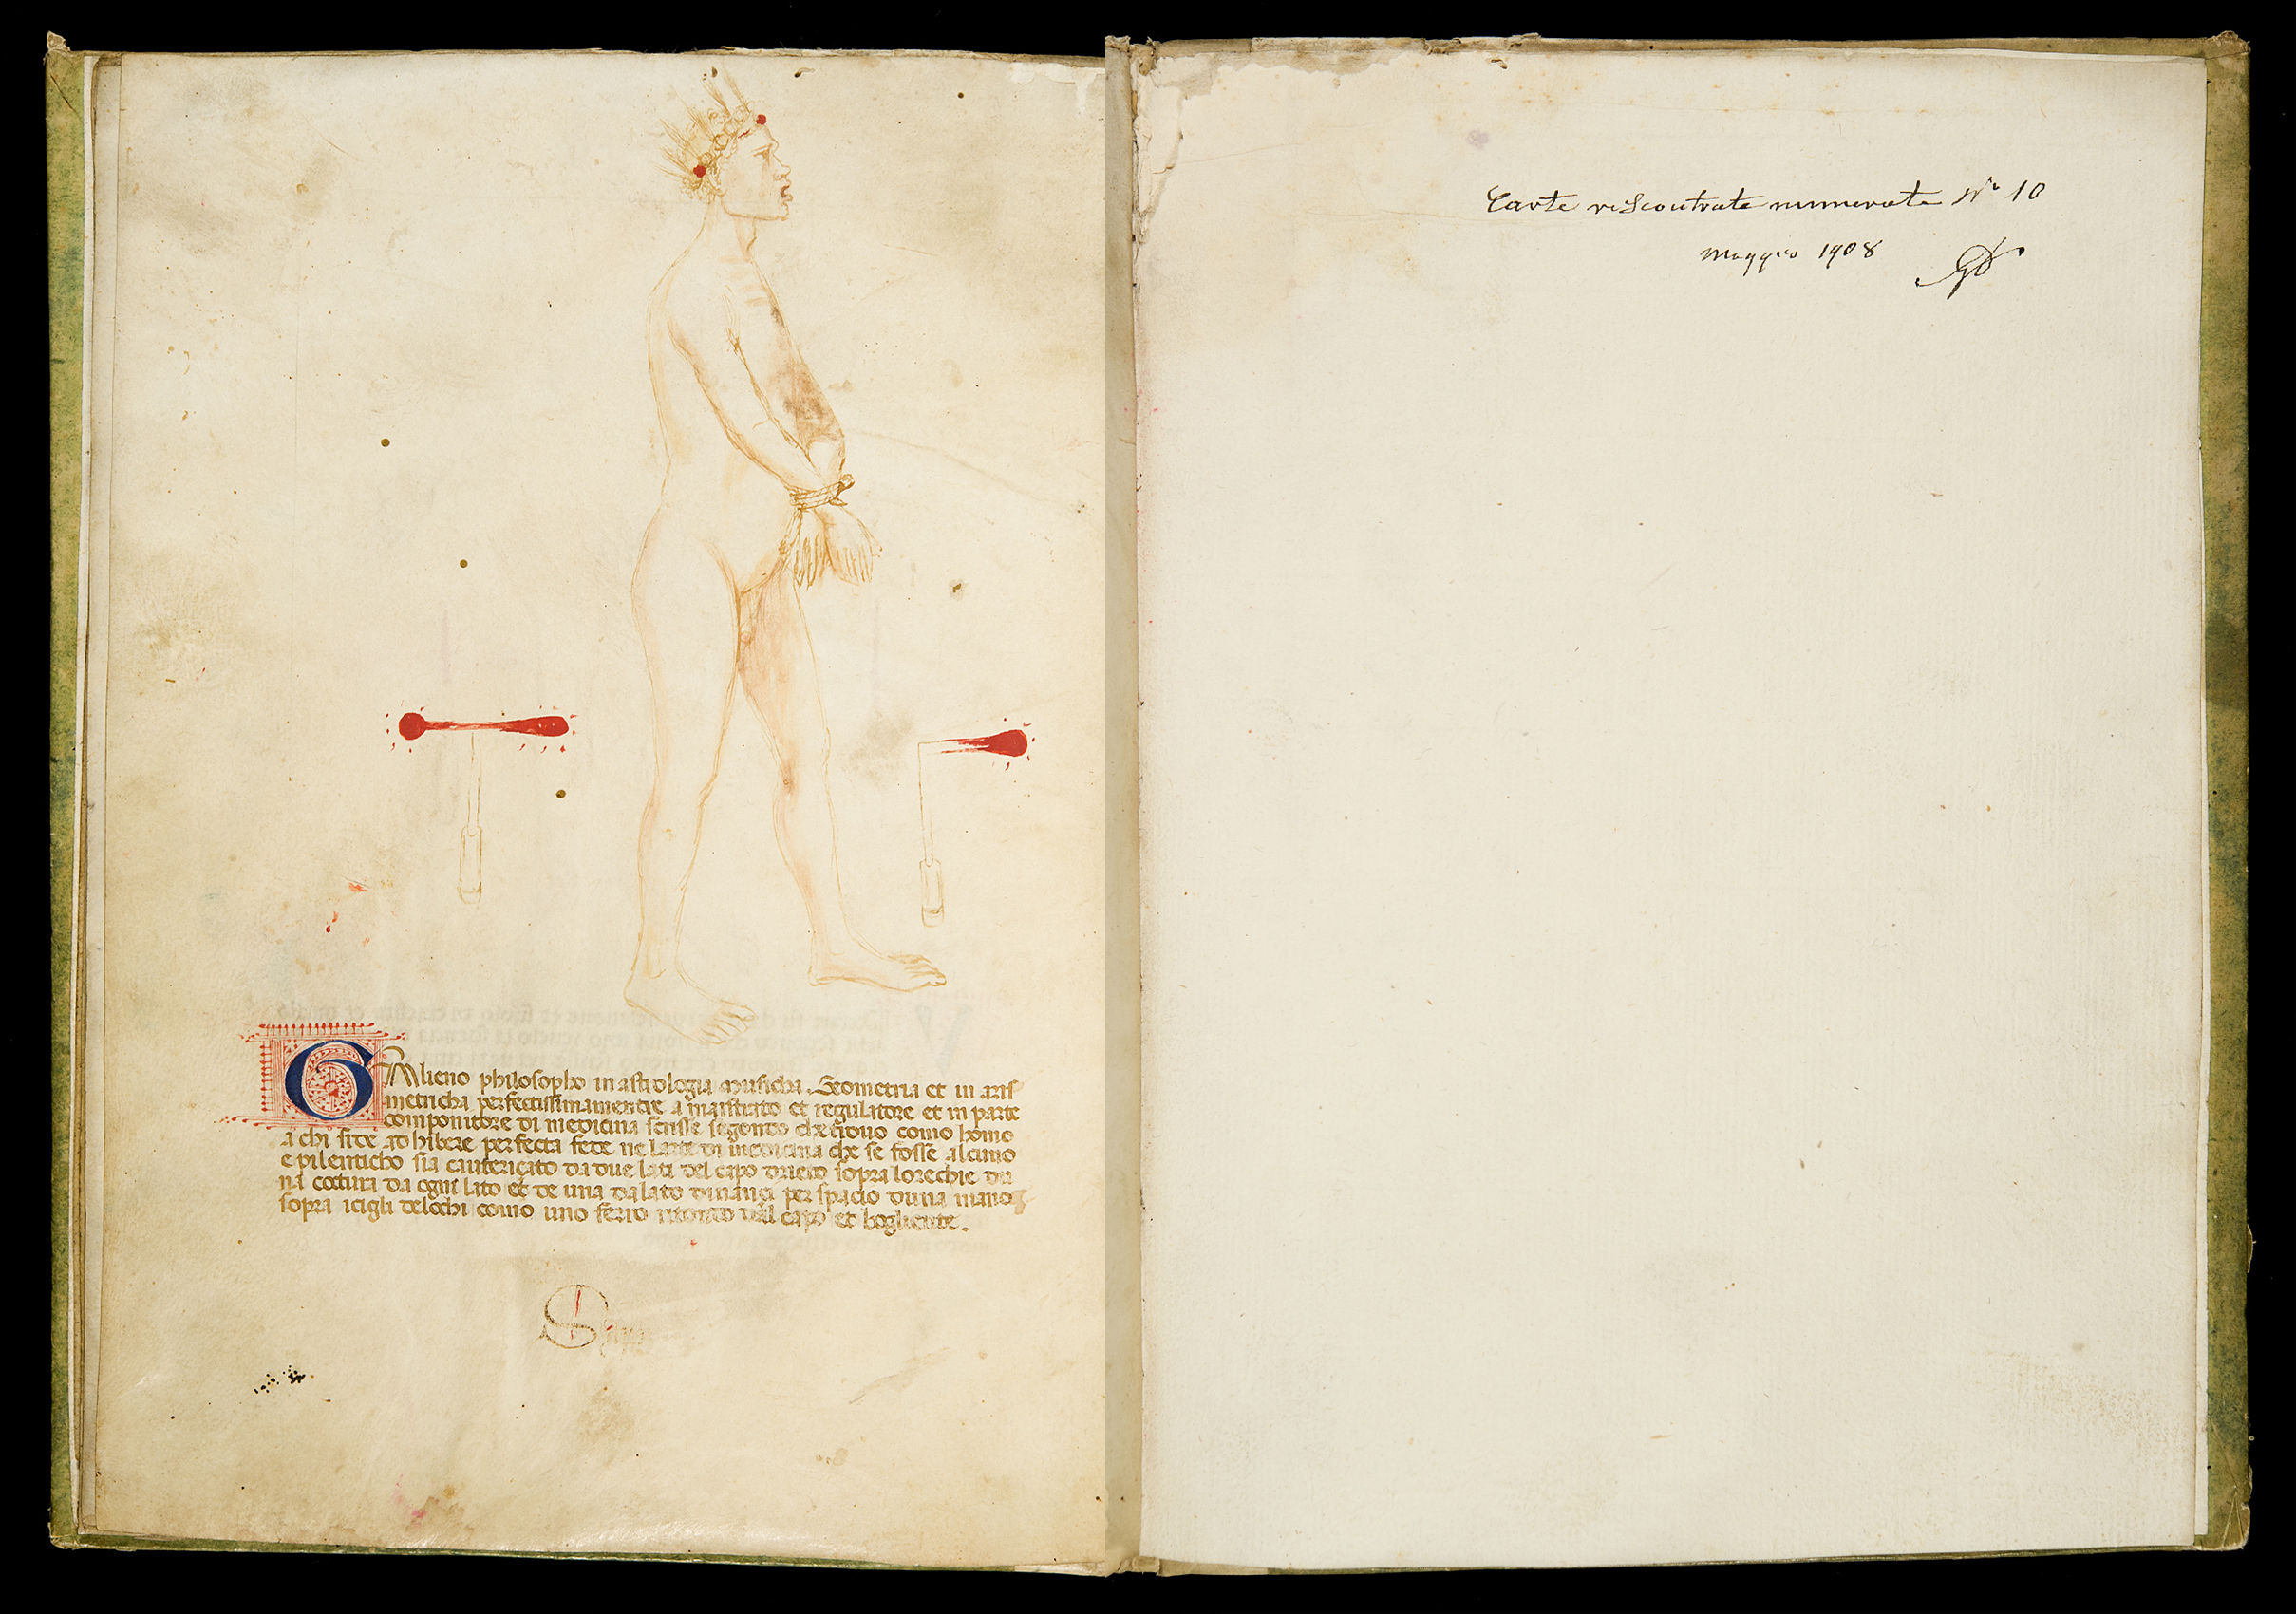 GAlieno philosopho in astrologia musicha. Geometria et in aris
metricha perfectissimamentre amaistrato et regulatore et in parte
componitore di medicina scrisse segondo che trovo como homo
a chi si de adhibere perfecta fede ne larte di medicina che se fosse alcuno
epilenticho sia cauteriçato da due lati del capo drieto sopra lorechie du
na coctura da ogni lato et de una da lato dinanci per spacio duna mano
sopra icigli delochi como uno ferro ritondo dal capo et bogliente.
Carte riscontrate numerate No 10
Maggio 1908